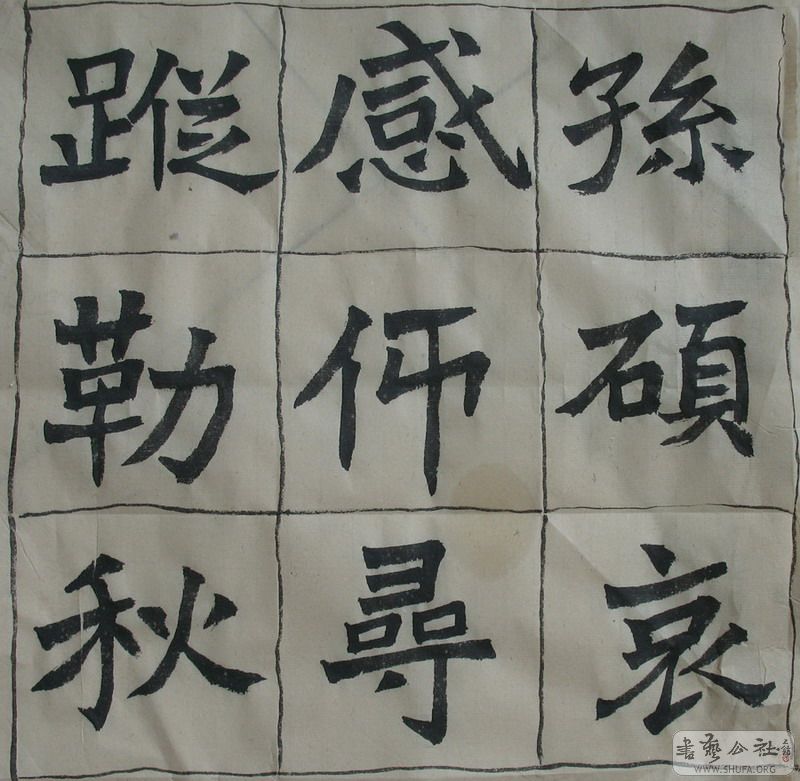 孫碩哀
感仰尋
蹤勒秋
書藝公社
WWW.SHUFA.ORG